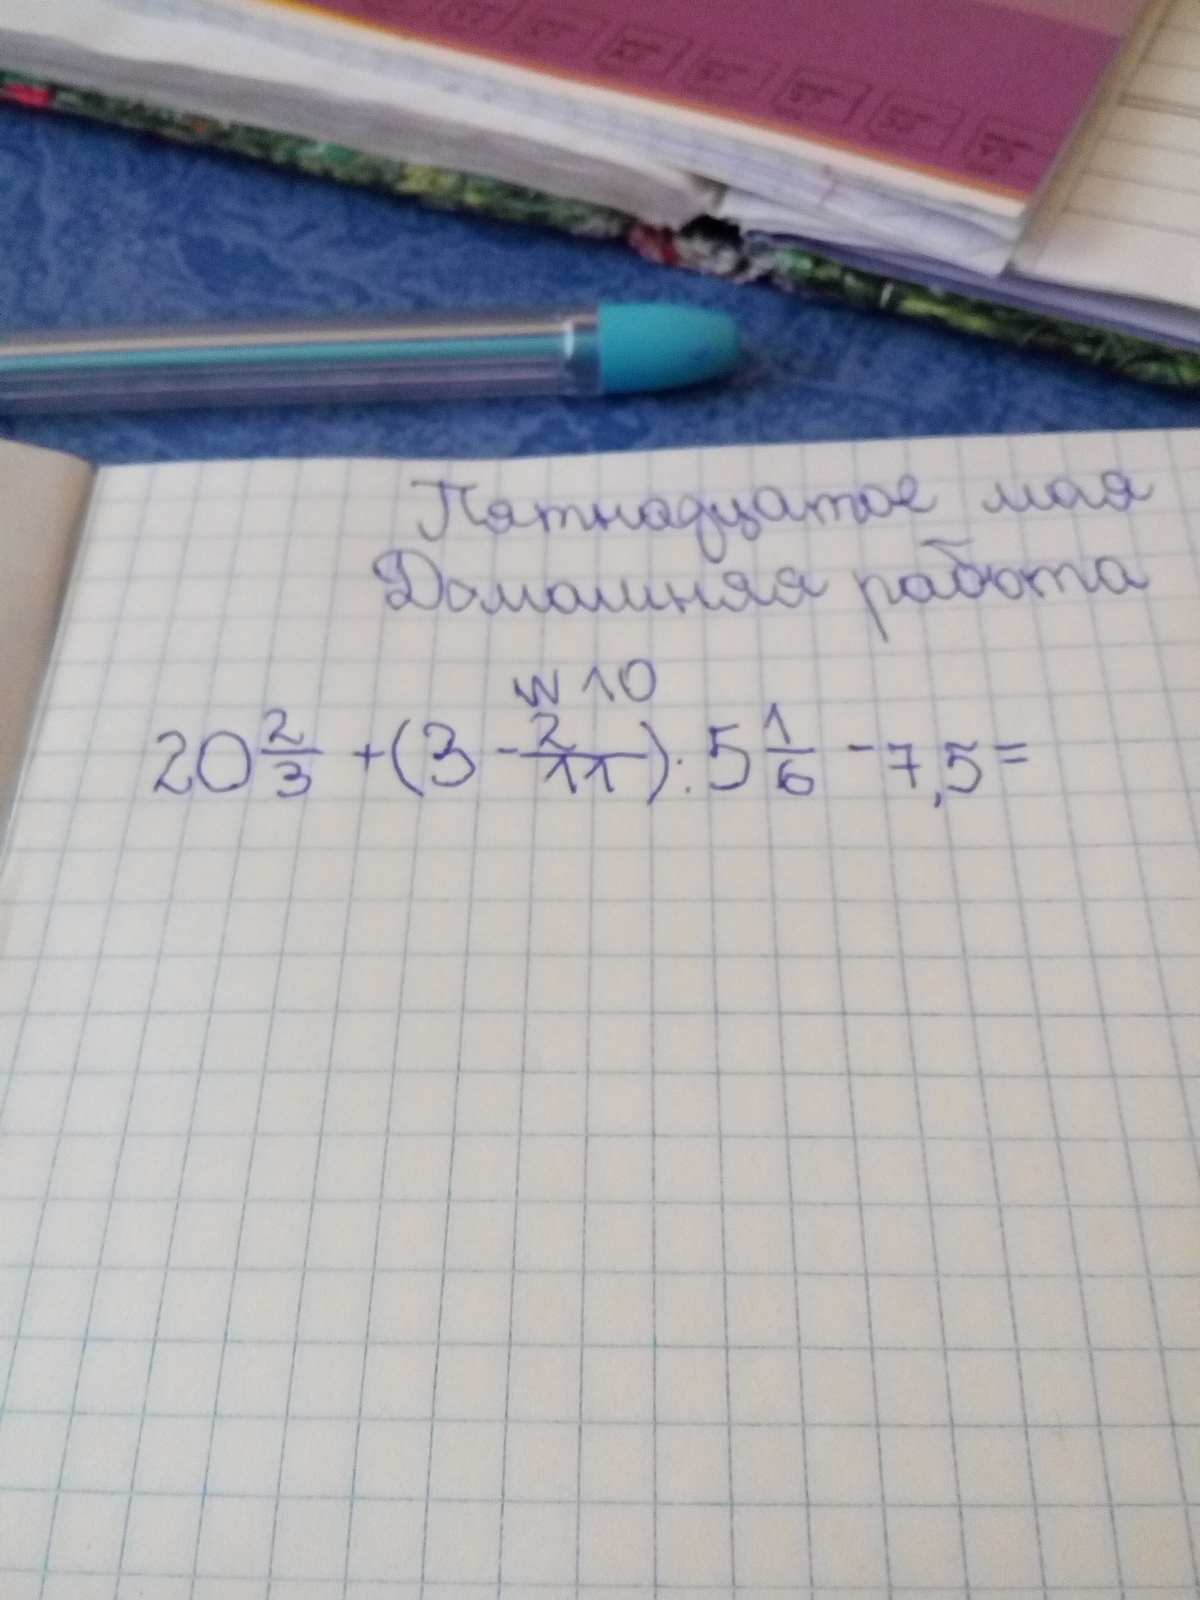 Пятнадцатое мая
Домашняя работа
№ 10
20 2/3 + (3 - 2/11) : 5 1/6 - 7,5 =